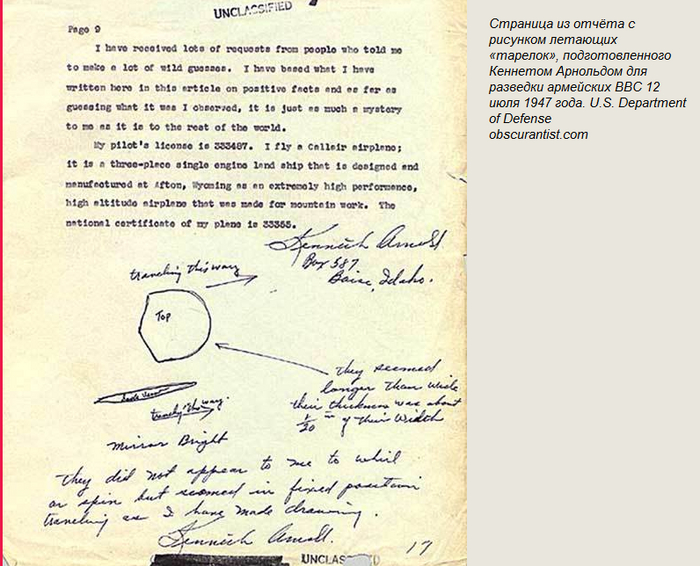 UNCLASSIFIED
Page 9
I have received lots of requests from people who told me
to make a lot of wild guesses. I have based what I have
written here in this article on positive facts and as far as
guessing what it was I observed, it is just as much a mystery
to me as it is to the rest of the world.
My pilot's license is 333487. I fly a Callair airplane;
it is a three-place single engine land ship that is designed and
manufactured at Afton, Wyoming as an extremely high performance,
high altitude airplane that was made for mountain work. The
national certificate of my plane is 33355.
Kenneth Arnold
Box 587
Boise, Idaho.
traveling this way
Top
they seemed
longer than wide
their thickness was about
1/20 of their width
side view
traveling this way.
Mirror Bright
They did not appear to me to whirl
or spin but seemed in fixed position
traveling as I have made drawing.
Kenneth Arnold.
17
UNCLASSIFIED
Страница из отчёта с
рисунком летающих
«тарелок», подготовленного
Кеннетом Арнольдом для
разведки армейских ВВС 12
июля 1947 года. U.S. Department
of Defense
obscurantist.com